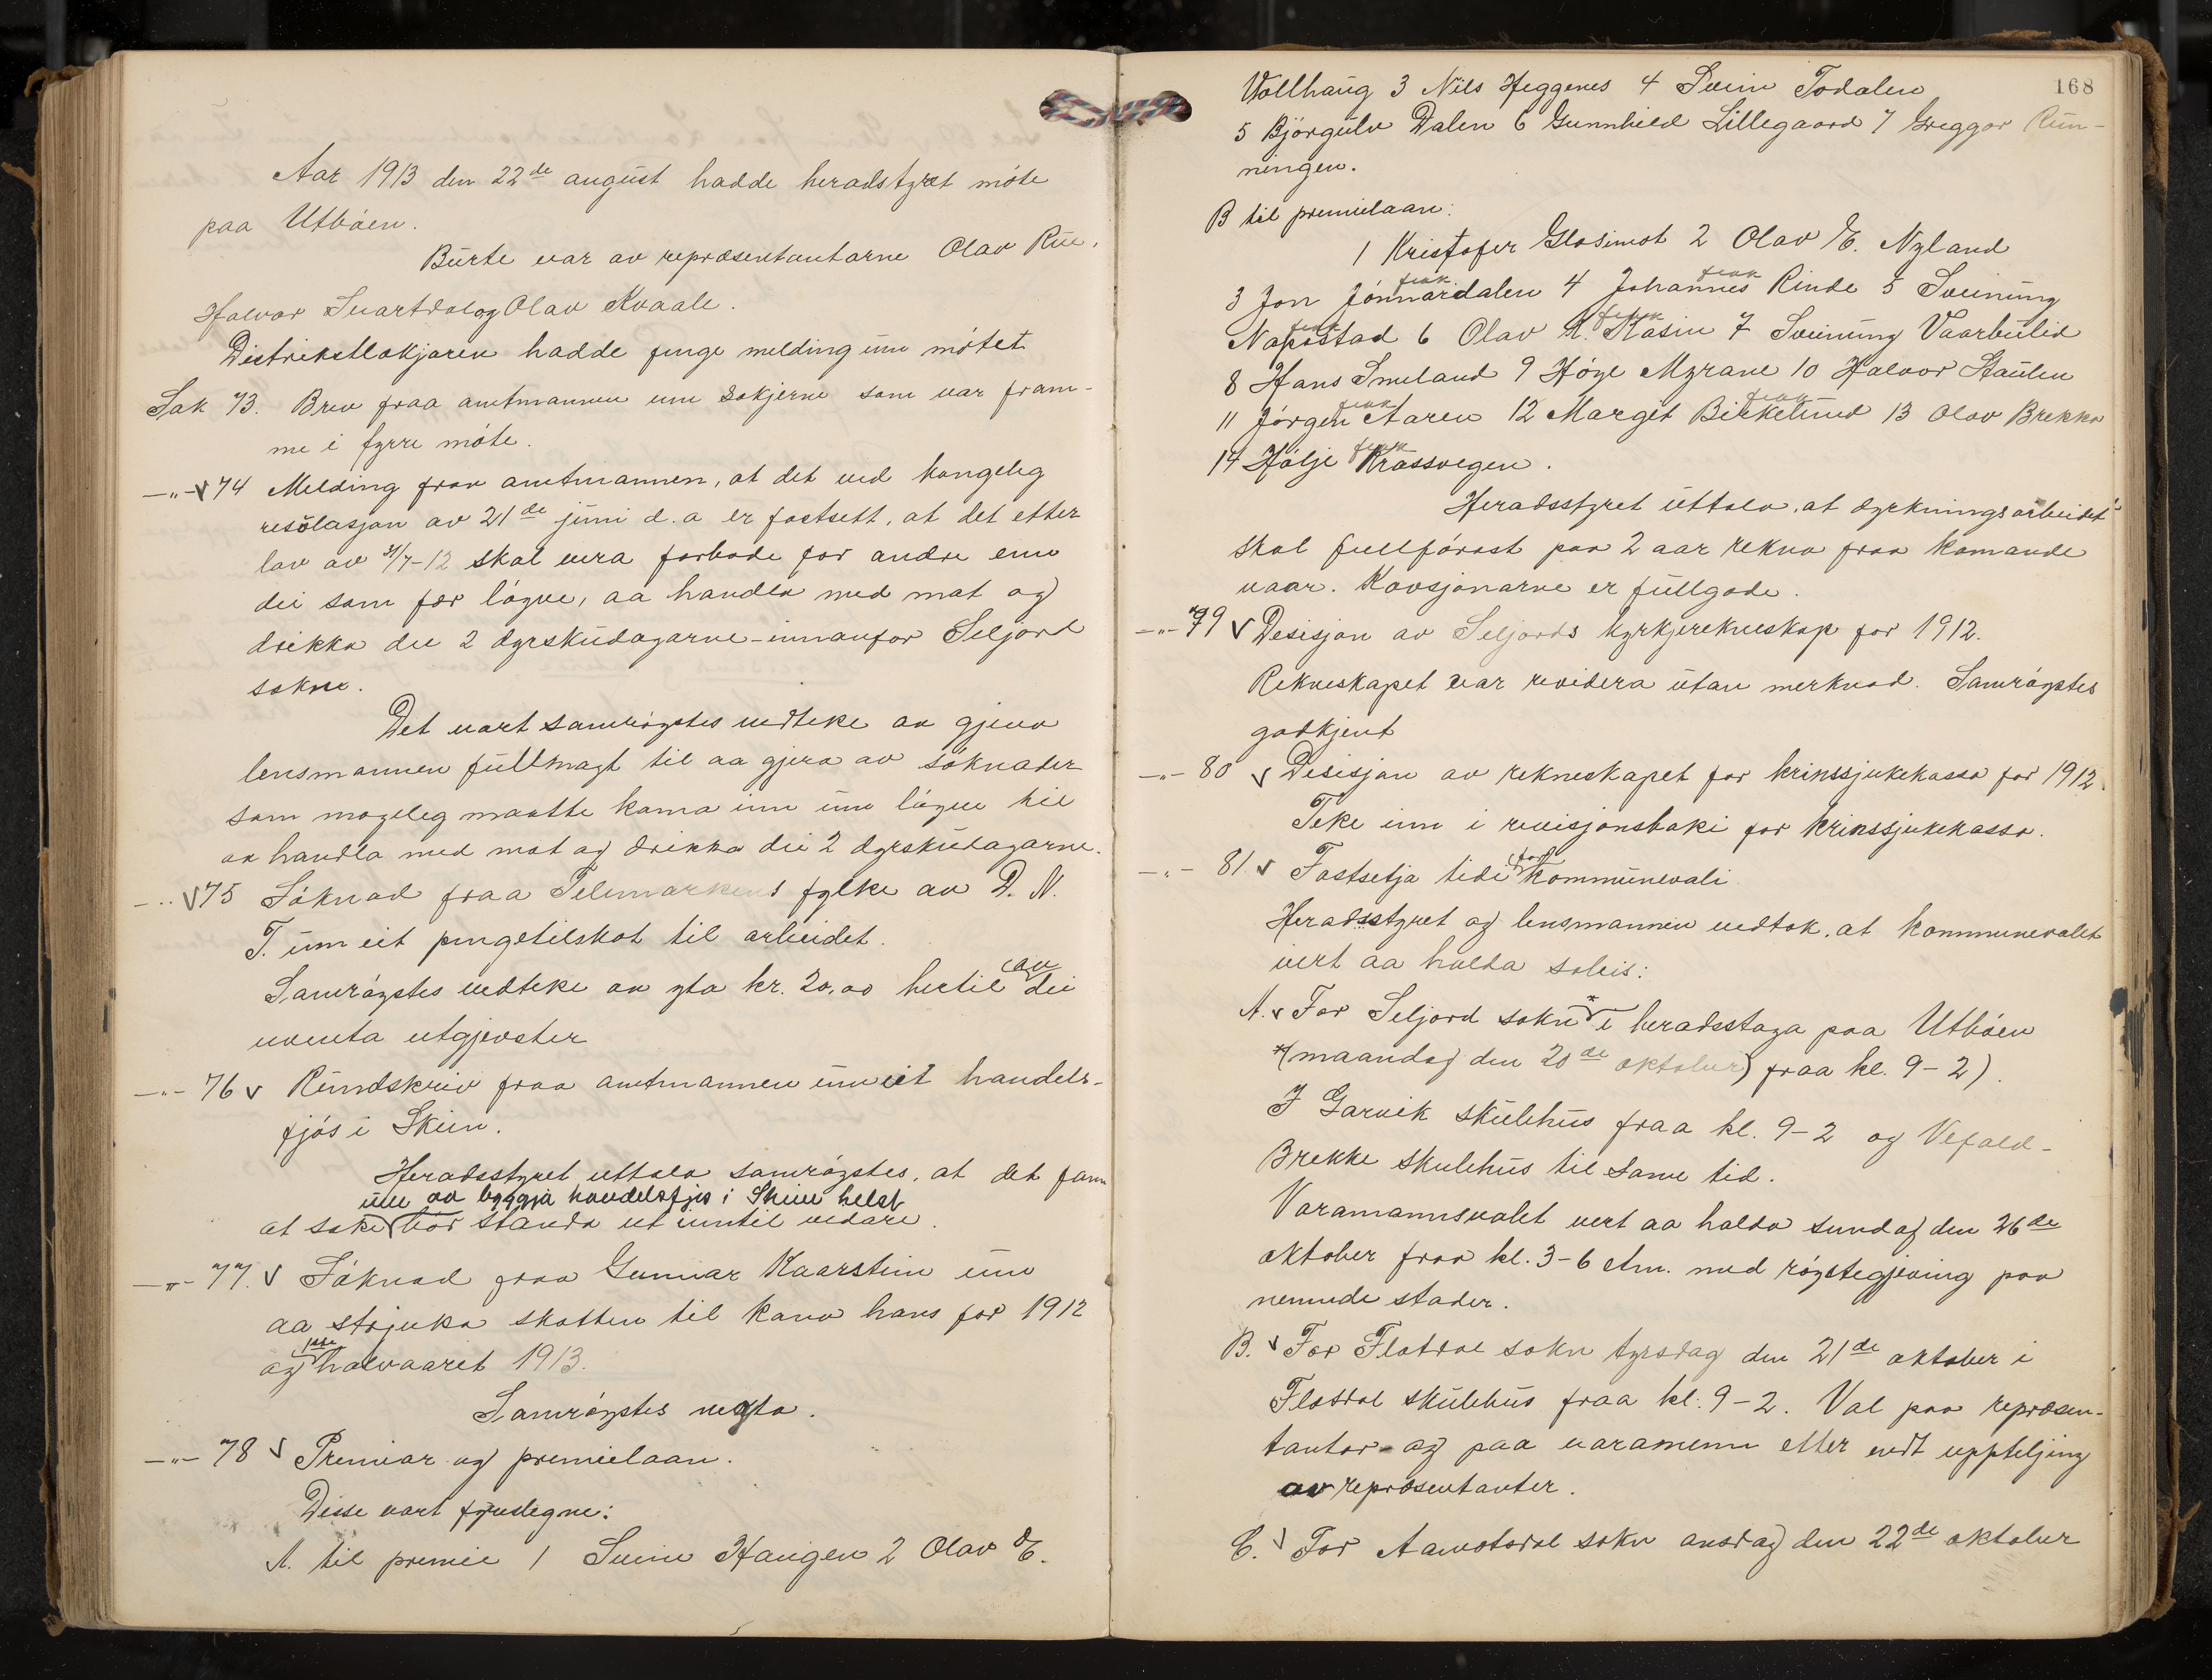 Aar 1913 den 22de august hadde heradstyret möte
paa Utböen.
Burte var av repræsentantarne Olav Rue,
Halvor Svartdal og Olav Kvaale.
Distrikstlækjaren hadde finge melding um mötet
Sak 73. Brev fraa amtmannen um sakjerne som var fram-
me i fyrre möte.
—"— v 74 Melding fraa amtmannen, at det ved kongeleg
resolusjon av 21de juni d.a er fastsett, at det etter
lov av 31/7-12 skal vera forbode for andre enn
dei som fær lögve, aa handla med mat og
drikka dei 2 dyrskudagarne innanfor Seljord
sokn.
Det vart samröystes vedteke aa gjeva
lensmannen fullmagt til aa gjera av söknader
som mogeleg maatte koma inn um lögve til
aa handla med mat og drikka dei 2 dyrskudagarne.
—"— v 75 Söknad fraa Telemarkens fylke av D. N.
T. um eit pengetilskot til arbeidet.
Samröystes vedteke aa yta kr. 20,00 hertil av dei
uventa utgjevster
—"— 76 v Rundskriv fraa amtmannen um eit handels-
fjös i Skien.
Heradsstyret uttala samröystes, at det fann
um aa byggja handelsfjös i Skien helst
at saki bör standa ut inntil vidare.
—"— 77. v Söknad fraa Gunnar Kaarstein um
aa strjuka skatten til kona hans for 1912
og 1ste halvaaret 1913.
Samröystes negta.
—"— 78 v Premiar og premielaan.
Disse vart fyreslegne:
A. til premie 1 Svein Haugen 2 Olav E.
168
Vollhaug 3 Nils Heggenes 4 Svein Todalen
5 Björgulv Dalen 6 Gunnhild Lillegaard 7 Greggor Run-
ningen.
B til premielaan:
1 Kristofer Glosimot 2 Olav E. Nyland
fekk fekk
3 Jon Jönnardalen 4 Johannes Rinde 5 Sveinung
fekk fekk
Napostad 6 Olav K. Kasin 7 Sveinung Vaarbulid
8 Hans Smeland 9 Höye Myrane 10 Halvor Staulen
fekk fekk
11 Jörgen Aaren 12 Margit Birkelund 13 Olav Brekka
fekk
14 Hölje Krossvegen.
Heradsstyret uttala, at dyrkningsarbeidet
skal fullförast paa 2 aar rekna fraa komande
vaar. Kavsjonarne er fullgode.
—"— 79 v Desisjon av Seljords kyrkjerekneskap for 1912.
Rekneskapet var revidera utan merknad. Samröystes
godkjent
—"— 80 v Desisjon av rekneskapet for krinssjukekassa for 1912.
Teke inn i revisjonsboki for krinssjukekassa.
—"— 81 v Fastsetja tidi for kommunevali
Heradsstyret og lensmannen vedtok, at kommunevalet
vert aa halda soleis:
A. v For Seljord sokn * i heradsstaga paa Utböen
*(maandag den 20de oktober) fraa kl. 9-2).
I Garvik skulehus fraa kl. 9-2 og Vefald-
Brekke skulehus til same tid.
Varamannsvalet vert aa halda sundag den 26de
oktober fraa kl. 3-6 etm. med röystegjeving paa
nemnde stader.
B. v For Flatdal sokn tyrsdag den 21de oktober i
Flatdal skulehus fraa kl. 9-2. Val paa repræsen-
tantar og paa varamenn etter endt uppteljing
av repræsentanter.
C. v For Aamotsdal sokn onsdag den 22de oktober